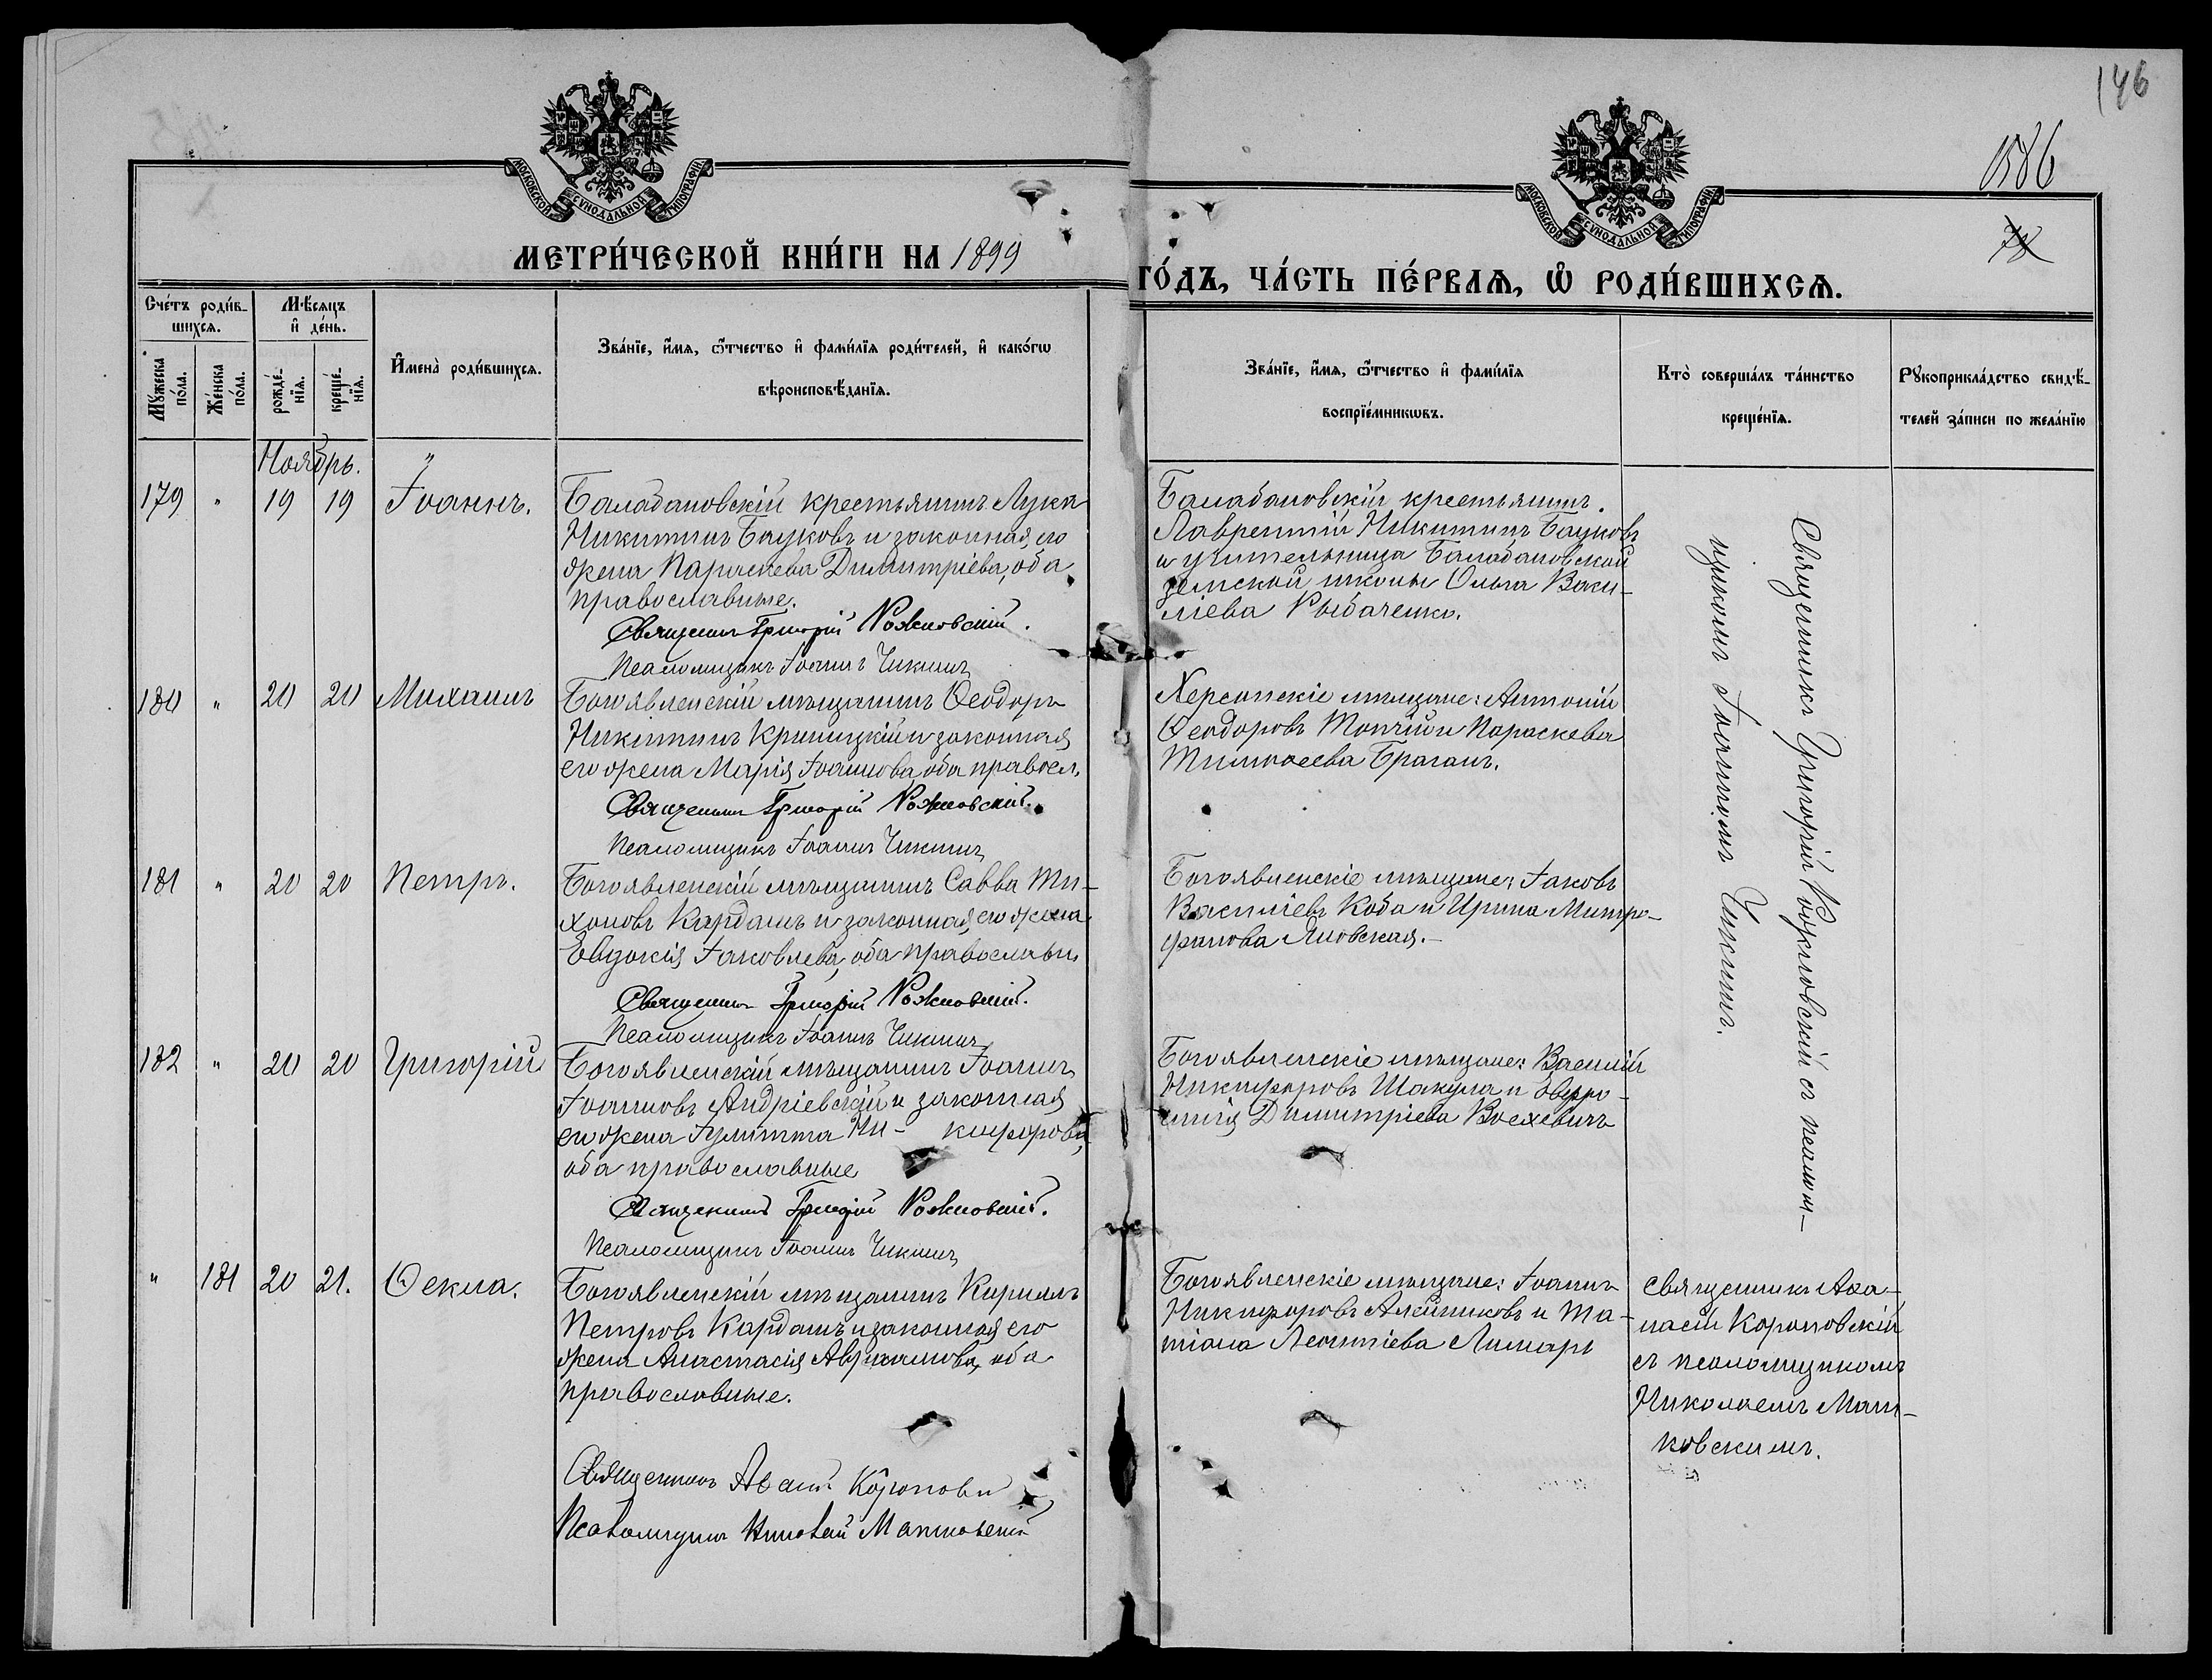 146
1586
78
МОСКОВСКОЙ СѴНОДАЛЬНОЙ ТИПОГРАФІИ
МОСКОВСКОЙ СѴНОДАЛЬНОЙ ТИПОГРАФІИ
МЕТРИ́ЧЕСКОЙ КНИ́ГИ НА 1899
ГО́ДЪ, ЧА́СТЬ ПЕ́РВАѦ, Ѡ҆ РОДИ́ВШИХСѦ.
Сче́тъ роди́в-
шихсѧ.
Мѣ́сѧцъ
и҆ де́нь.
Мꙋ́жеска
по́ла.
Же́нска
по́ла.
рожде́-
нїѧ.
креще́-
нїѧ.
И҆мена̀ роди́вшихсѧ.
Зва́нїе, и҆́мѧ, ѻ҆́тчество и҆ фами́лїѧ роди́телей, и҆ како́гѡ
вѣроисповѣ́данїѧ.
Зва́нїе, и҆́мѧ, ѻ҆́тчество и҆ фами́лїѧ
воспрїе́мникѡвъ.
Кто̀ соверша́лъ та́инство
креще́нїѧ.
Рꙋкоприкла́дство свидѣ́-
телей за́писи по жела́нїю
Ноябрь.
179 " 19 19 Іоаннъ.
Балабановскій крестьянинъ Лука
Никитинъ Бауковъ и законная его
жена Параскева Димитріева, оба
православные.
Священникъ Григорій Рожновскій.
Псаломщикъ Іоаннъ Чикинъ
Балабановскій крестьянинъ
Лаврентій Никитинъ Бауковъ
и учительница Балабановской
земской школы Ольга Васи-
ліева Рыбаченко.
180 " 20 20 Михаилъ
Богоявленскій мѣщанинъ Ѳеодоръ
Никитинъ Криницкій и законная
его жена Марія Іоаннова, оба правосл.
Священникъ Григорій Рожновскій.
Псаломщикъ Іоаннъ Чикинъ
Херсонскіе мѣщане: Антоній
Ѳеодоровъ Топчій и Параскева
Тимоѳеева Браганъ.
181 " 20 20 Петръ.
Богоявленскій мѣщанинъ Савва Ти-
хоновъ Кардашъ и законная его жена
Евдокія Іаковлева, оба православн
Священникъ Григорій Рожновскій.
Псаломщикъ Іоаннъ Чикинъ
Богоявленскіе мѣщане: Іаковъ
Василіевъ Коба и Ирина Митро-
фанова Яновская.
182 " 20 20 Григорій
Богоявленскій мѣщанинъ Іоаннъ
Іоанновъ Андріевскій и законная
его жена Іулитта Ни- кифорова,
оба православные
Священникъ Григорій Рожновскій.
Псаломщикъ Іоаннъ Чикинъ
Богоявленскіе мѣщане: Василій
Никифоровъ Шакула и Евфро-
синія Димитріева
Священникъ Григорій Рожновскій съ псалом-
щикомъ Іоанномъ Чикинъ.
" 181 20 21. Ѳекла.
Богоявленскій мѣщанинъ Кириллъ
Петровъ Кардашъ и законная его
жена Анастасія Авраамова, оба
православные.
Священникъ Аѳан. Короновск
Псаломщикъ Николай Маньковскій
Богоявленскіе мѣщане: Іоаннъ
Никифоровъ Алейниковъ и Та-
тіана Леонтіева Лимарь
священникъ Аѳа-
насій Короновскій
съ псаломщикомъ
Николаемъ Мань-
ковскимъ.